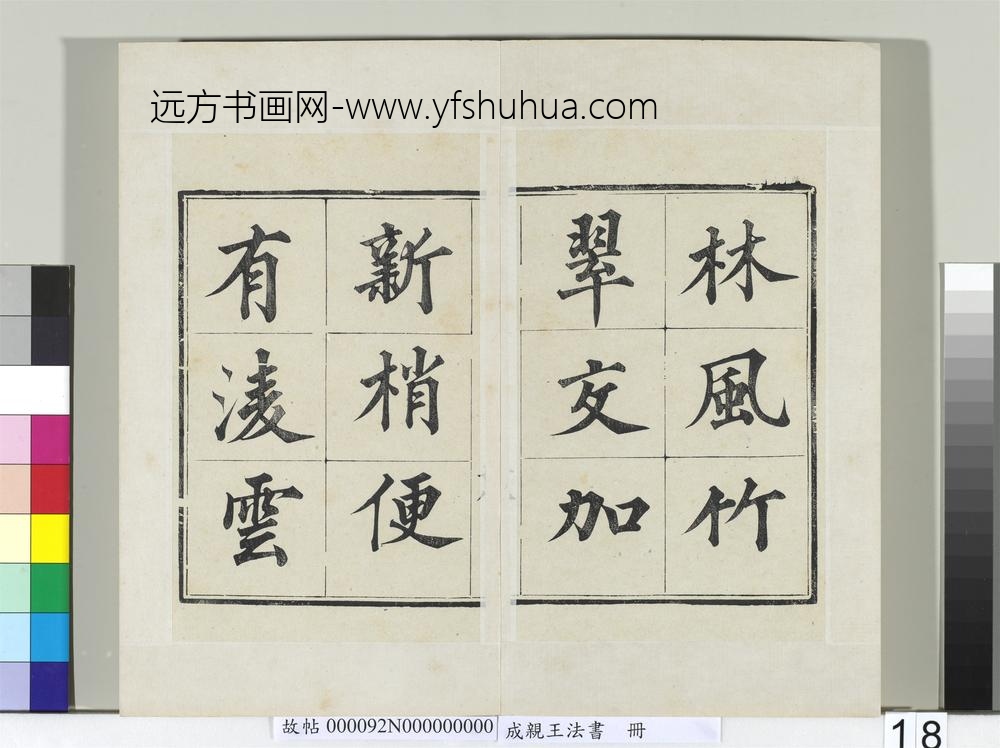 远方书画网-www.yfshuhua.com
林風竹
翠交加
新梢便
有淩雲
故帖 000092N000000000 成親王法書 冊
18